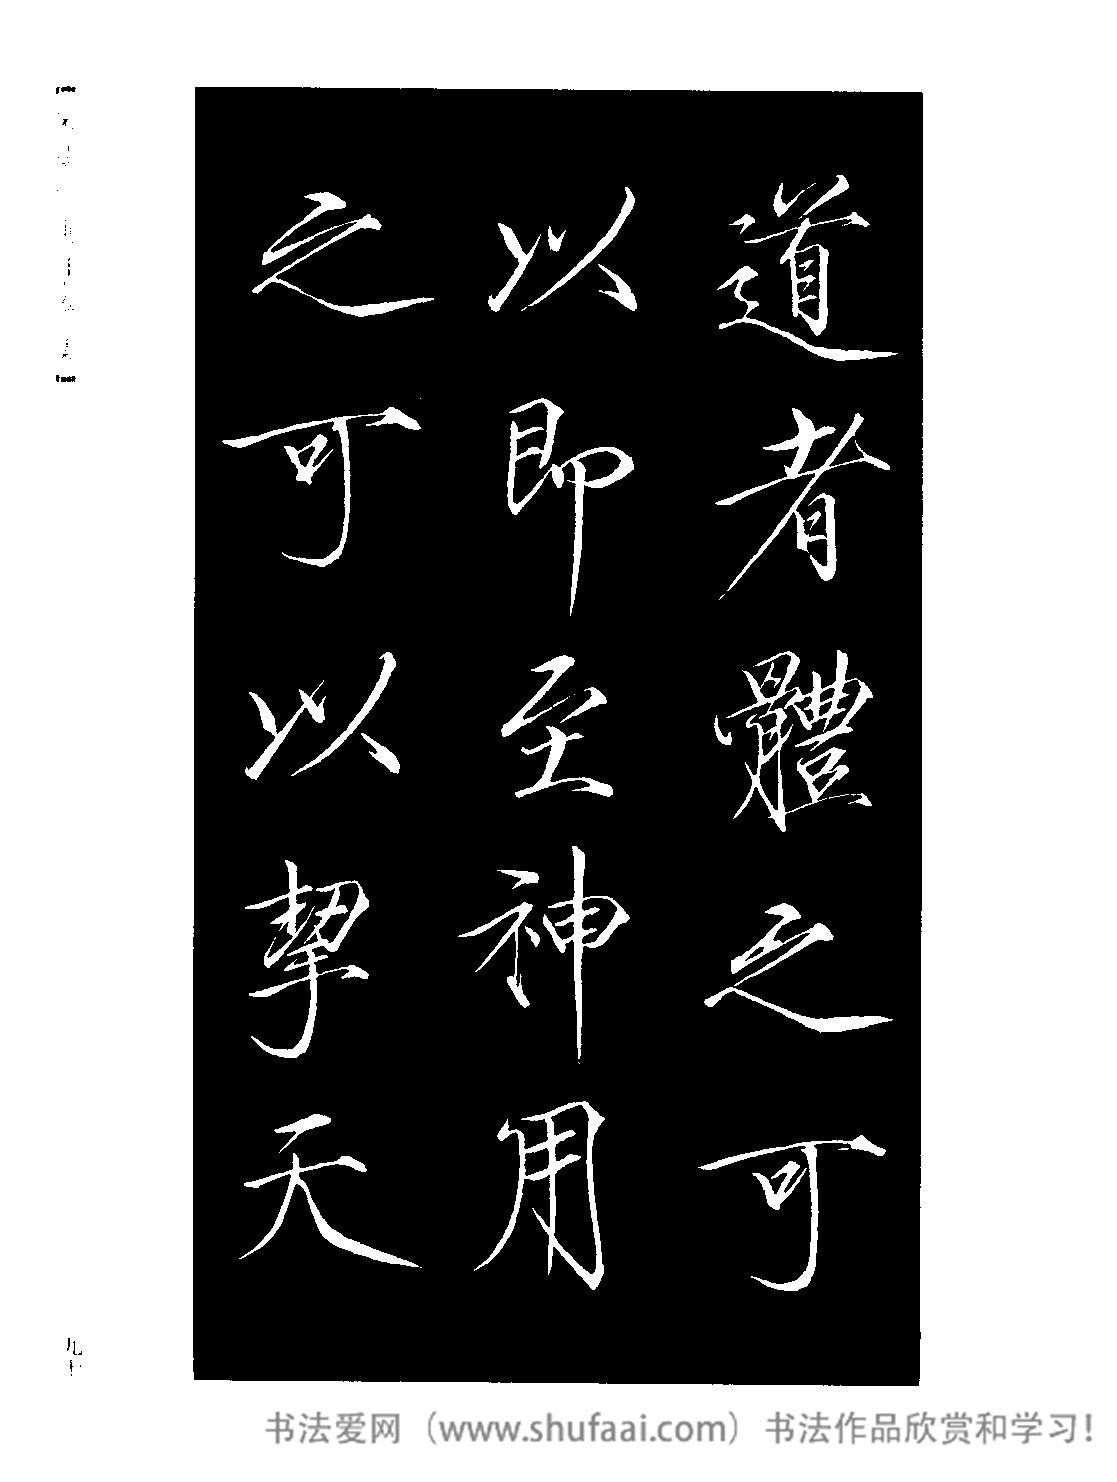 道者體之可
以即至神用
之可以挈天
九十
书法爱网（www.shufaai.com）书法作品欣赏和学习！